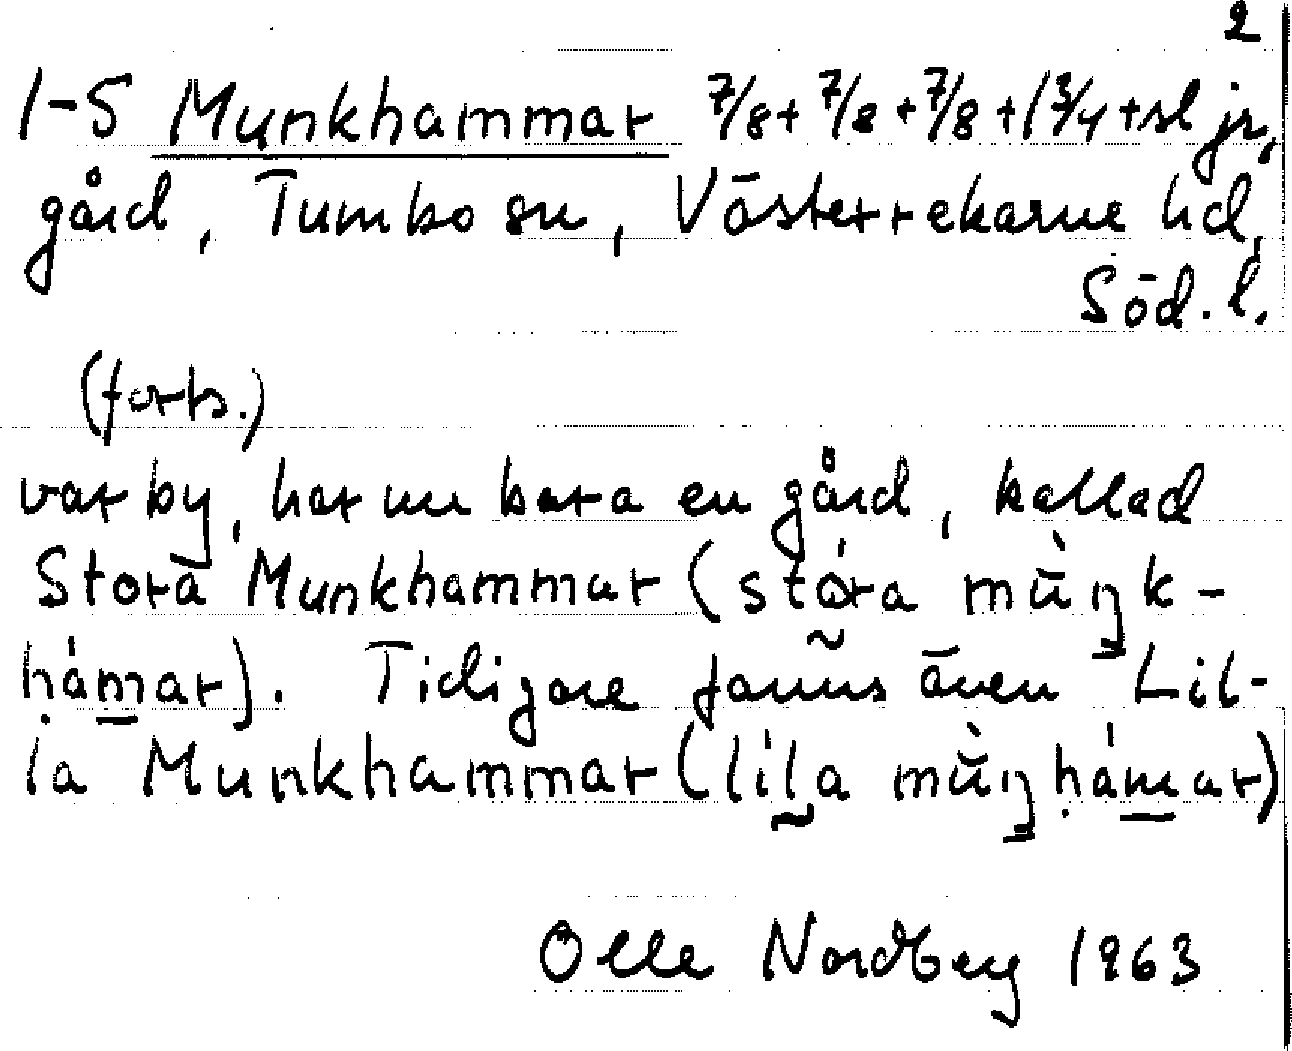 2
1-5 Munkhammar 7/8+7/8+7/8+1 3/4+sl jr,
gård, Tumbo sn, Västerrekarne hd,
Söd. l.
(forts.)
var by, har nu bara en gård, kallad
Stora Munkhammar (stóra mùŋk-
hámar). Tidigare fanns även Lil-
la Munkhammar (líla mùŋhámar)
Olle Nordberg 1963